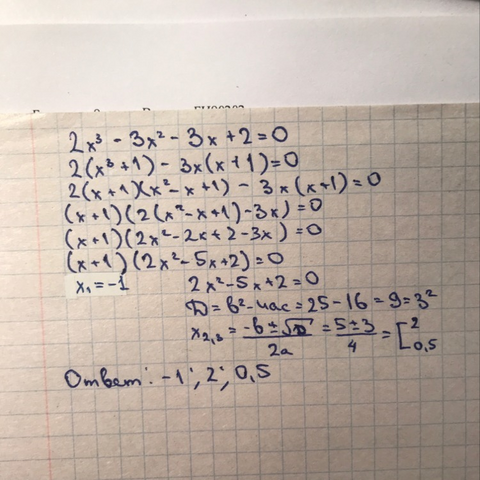 2x³ - 3x² - 3x + 2 = 0
2(x³ + 1) - 3x(x + 1) = 0
2(x + 1)(x² - x + 1) - 3x(x + 1) = 0
(x + 1)(2(x² - x + 1) - 3x) = 0
(x + 1)(2x² - 2x + 2 - 3x) = 0
(x + 1)(2x² - 5x + 2) = 0
x₁ = -1 2x² - 5x + 2 = 0
D = b² - 4ac = 25 - 16 = 9 = 3²
x₂,₃ = (-b ± √D)/2a = (5 ± 3)/4 = [2 0,5
Ответ: -1; 2; 0,5